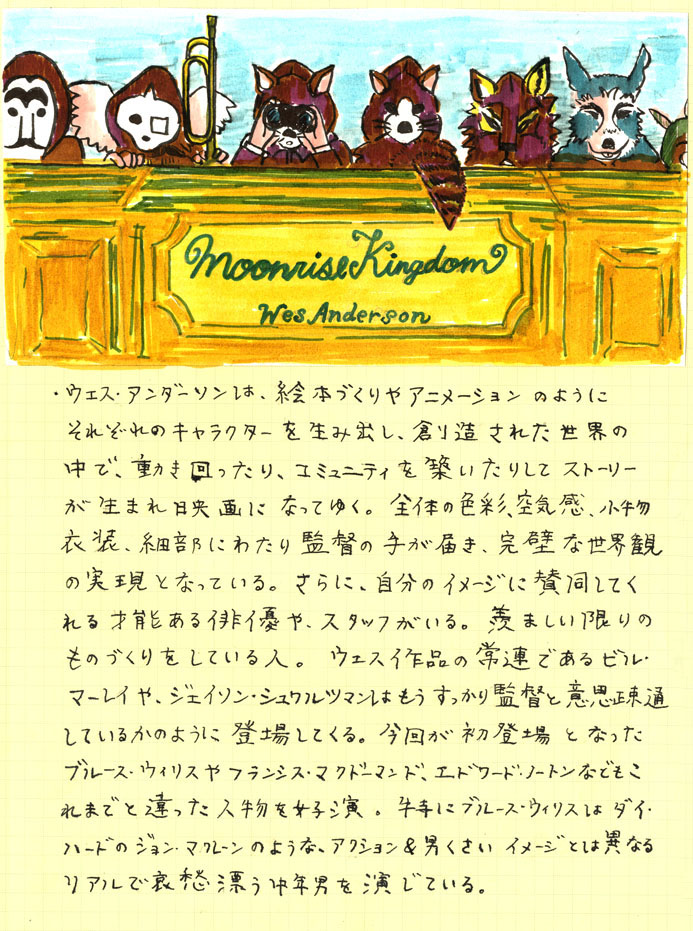 Moonrise Kingdom
Wes Anderson
・ウェス・アンダーソンは、絵本づくりやアニメーションのように
それぞれのキャラクターを生み出し、創造された世界の
中で、動き回ったり、コミュニティを築いたりしてストーリー
が生まれ映画になってゆく。全体の色彩、空気感、小物
衣装、細部にわたり監督の手が届き、完璧な世界観
の実現となっている。さらに、自分のイメージに賛同してく
れる才能ある俳優や、スタッフがいる。羨ましい限りの
ものづくりをしている人。ウェス作品の常連であるビル・
マーレイや、ジェイソン・シュワルツマンはもうすっかり監督と意思疎通
しているかのように登場してくる。今回が初登場となった
ブルース・ウィリスやフランシス・マクドーマンド、エドワード・ノートンなどもこ
れまでと違った人物を好演。特にブルース・ウィリスはダイ・
ハードのジョン・マクレーンのような、アクション&男くさいイメージとは異なる
リアルで哀愁漂う中年男を演じている。